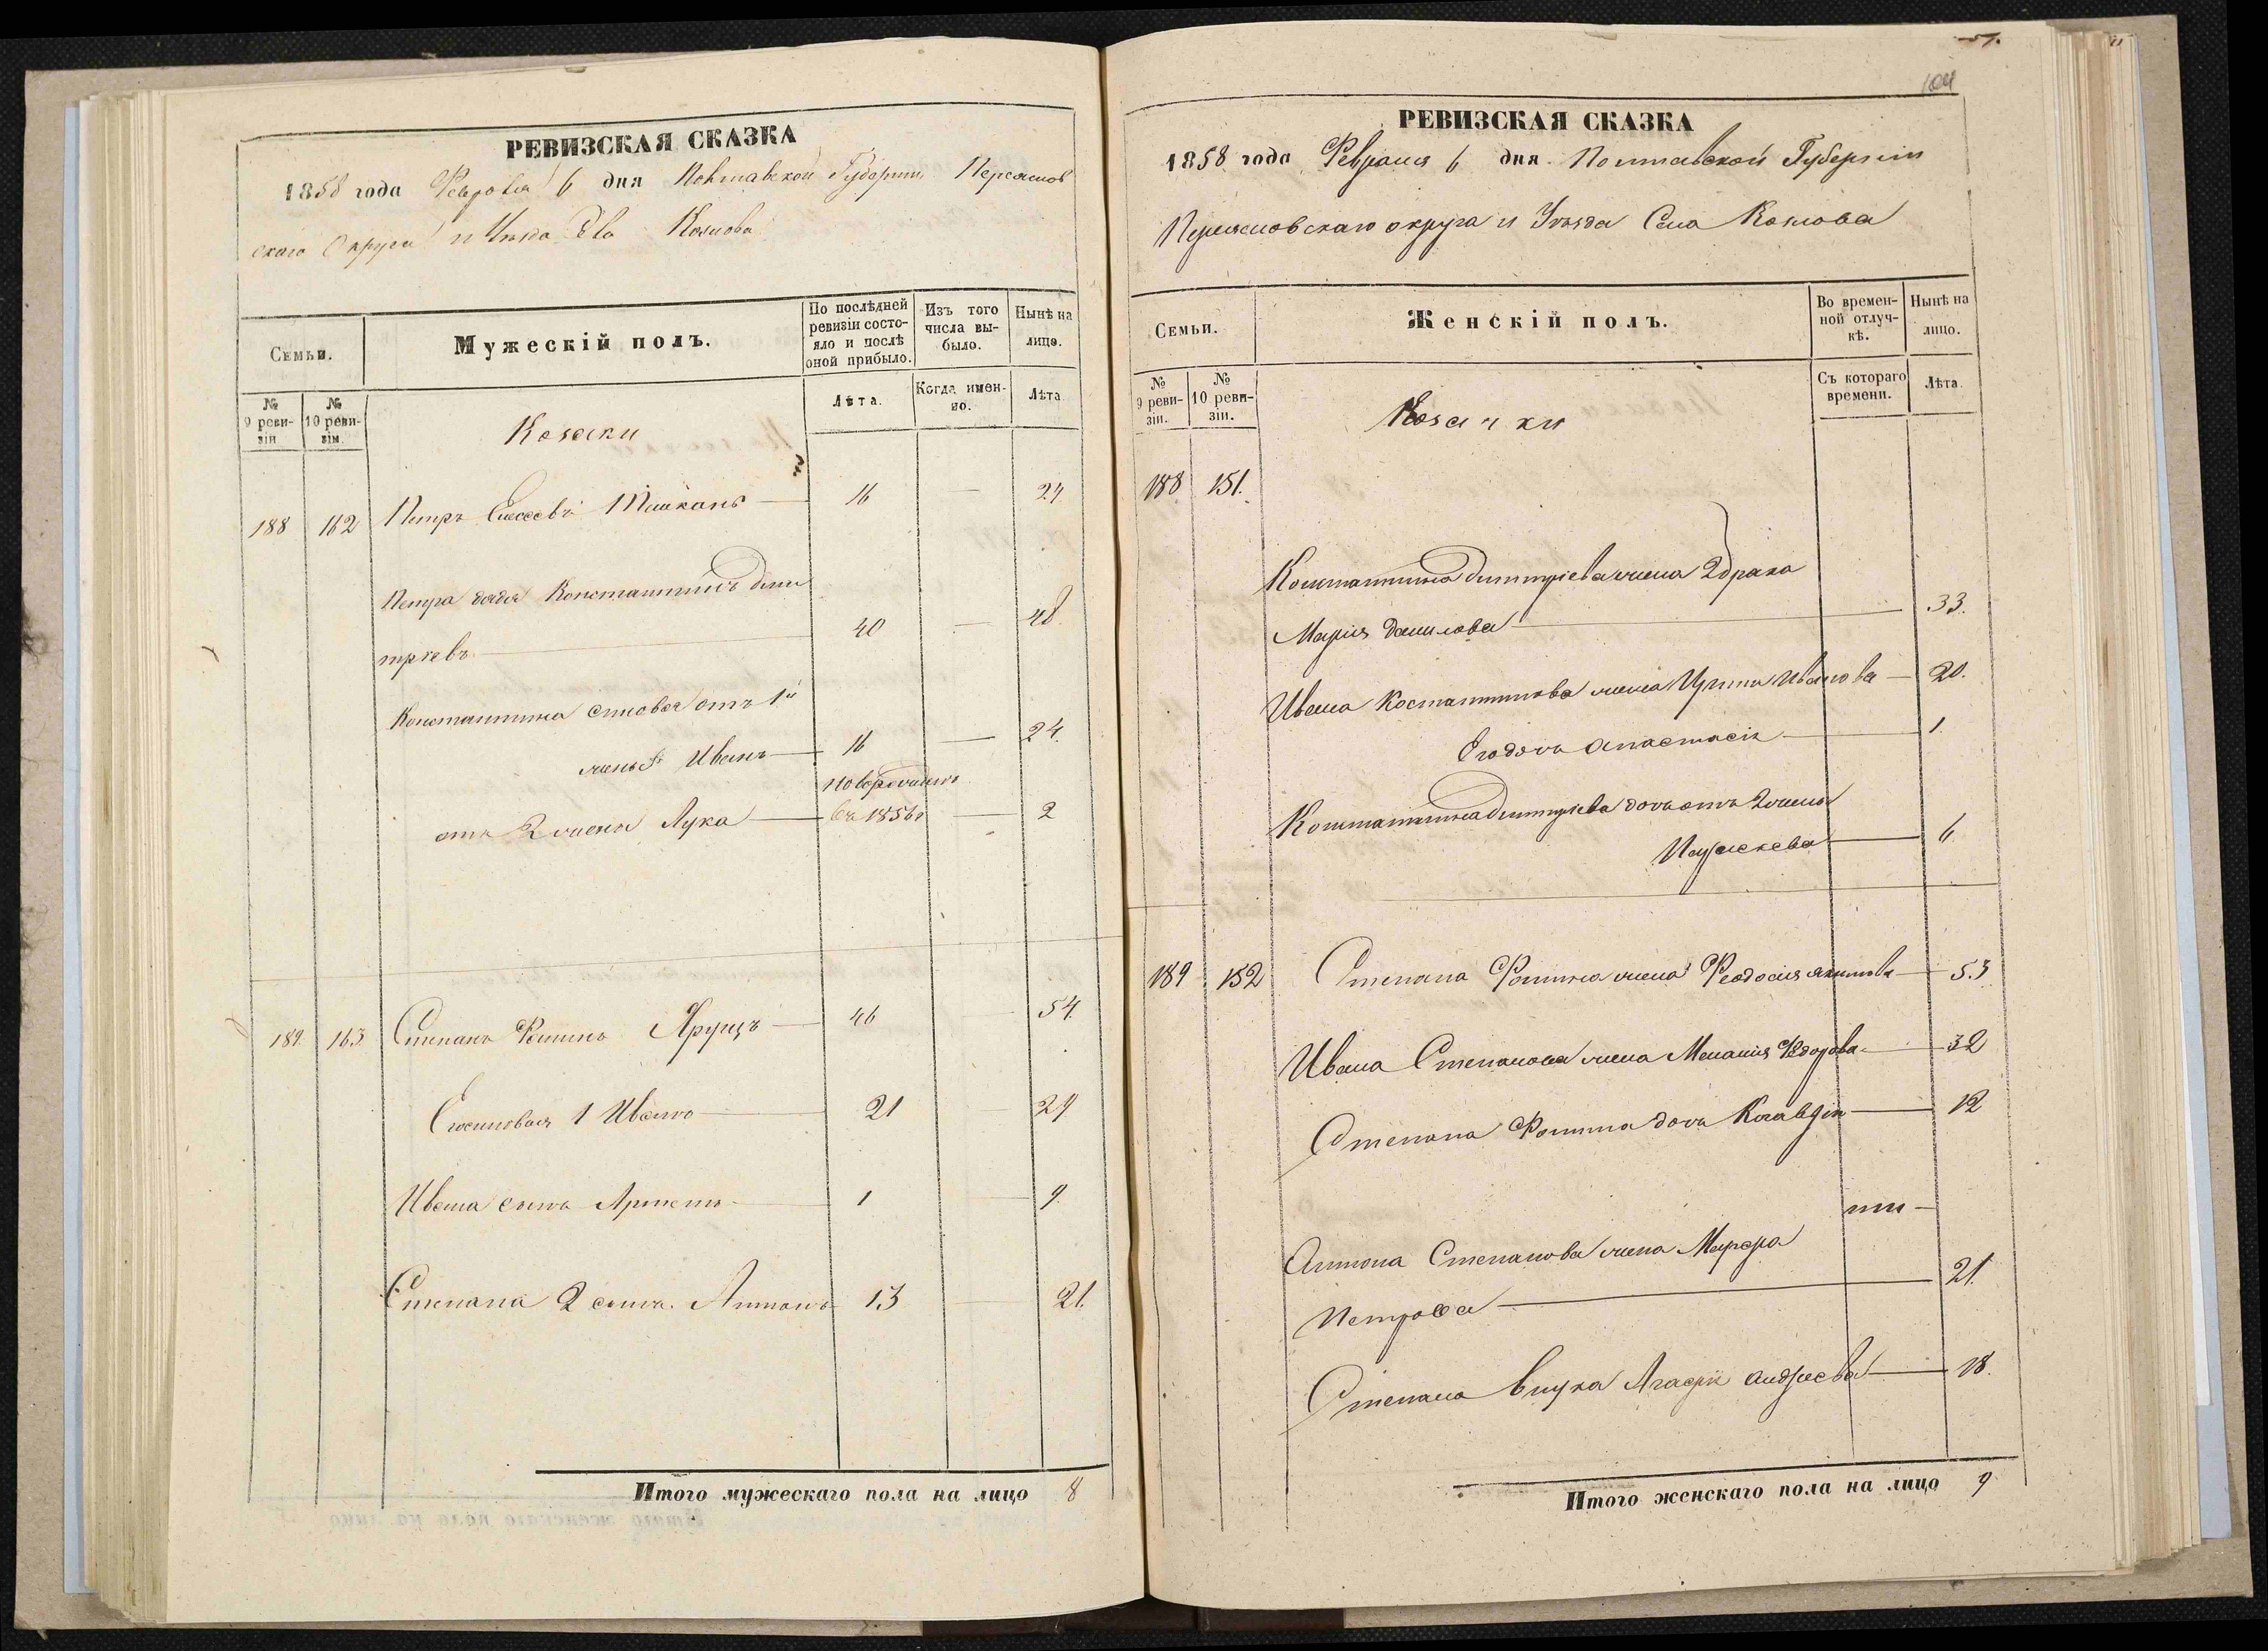 РЕВИЗСКАЯ СКАЗКА
1858 года Февраля 6 дня Полтавской Губерніи Переяслов
скаго Округа и Уѣзда Села
Семьи.
Мужескій полъ.
По послѣдней ревизіи состояло и послѣ оной прибыло.
Изъ того числа выбыло.
Нынѣ на лицо.
№ 9 ревизіи
№ 10 ревизіи.
Лѣта.
Когда именно.
Лѣта
Козаки
188 162 Петръ 16 — 24
Петра дядя Константинъ дми
тріевъ 40 — 48.
Константина синовья отъ 1й
жены Иванъ 16 — 24.
новорожденъ
отъ 2 жены Лука въ 1856 г — 2
189. 163. Степанъ Фоминъ 46 — 54.
Его синовья 1 Иванъ 21 — 29
Ивана сынъ Артемъ 1 — 9.
Степана 2 сынъ Антонъ 13 — 21.
Итого мужескаго пола на лицо 8
57.
104
РЕВИЗСКАЯ СКАЗКА
1858 года Февраля 6 дня Полтавской Губерніи
Переясловскаго округа и Уѣзда Села
Семьи.
Женскій полъ.
Во временной отлучкѣ.
Нынѣ на лицо.
№ 9 ревизіи.
№ 10 ревизіи.
Съ котораго времени.
Лѣта.
Козачки
188 151.
Константина дмитріева жена 2 брака
Марія данилова 33.
Ивана Костантинова жена Ирина Иванова 20.
Его дочь анастасія 1
Константина дмитріева дочь отъ 2 жены
Параскева 6
189 152 Степана Фомина жена Феодосия акимова 53
Ивана Степанова жена Меланія Федорова 32
Степана Фомина дочь Клавдія 12
Антона Степанова жена Марфа
Петрова 21.
Степана внука Агафія андреева 18.
Итого женскаго пола на лицо 9